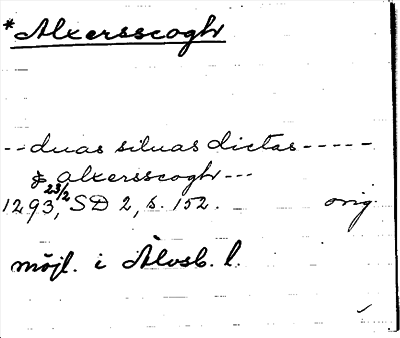 *Alxersscogh
-- duas siluas dictas -----
& alxersscogh ---
1293, 23/2 SD 2, s. 152. orig
möjl. i Älvsb. l.